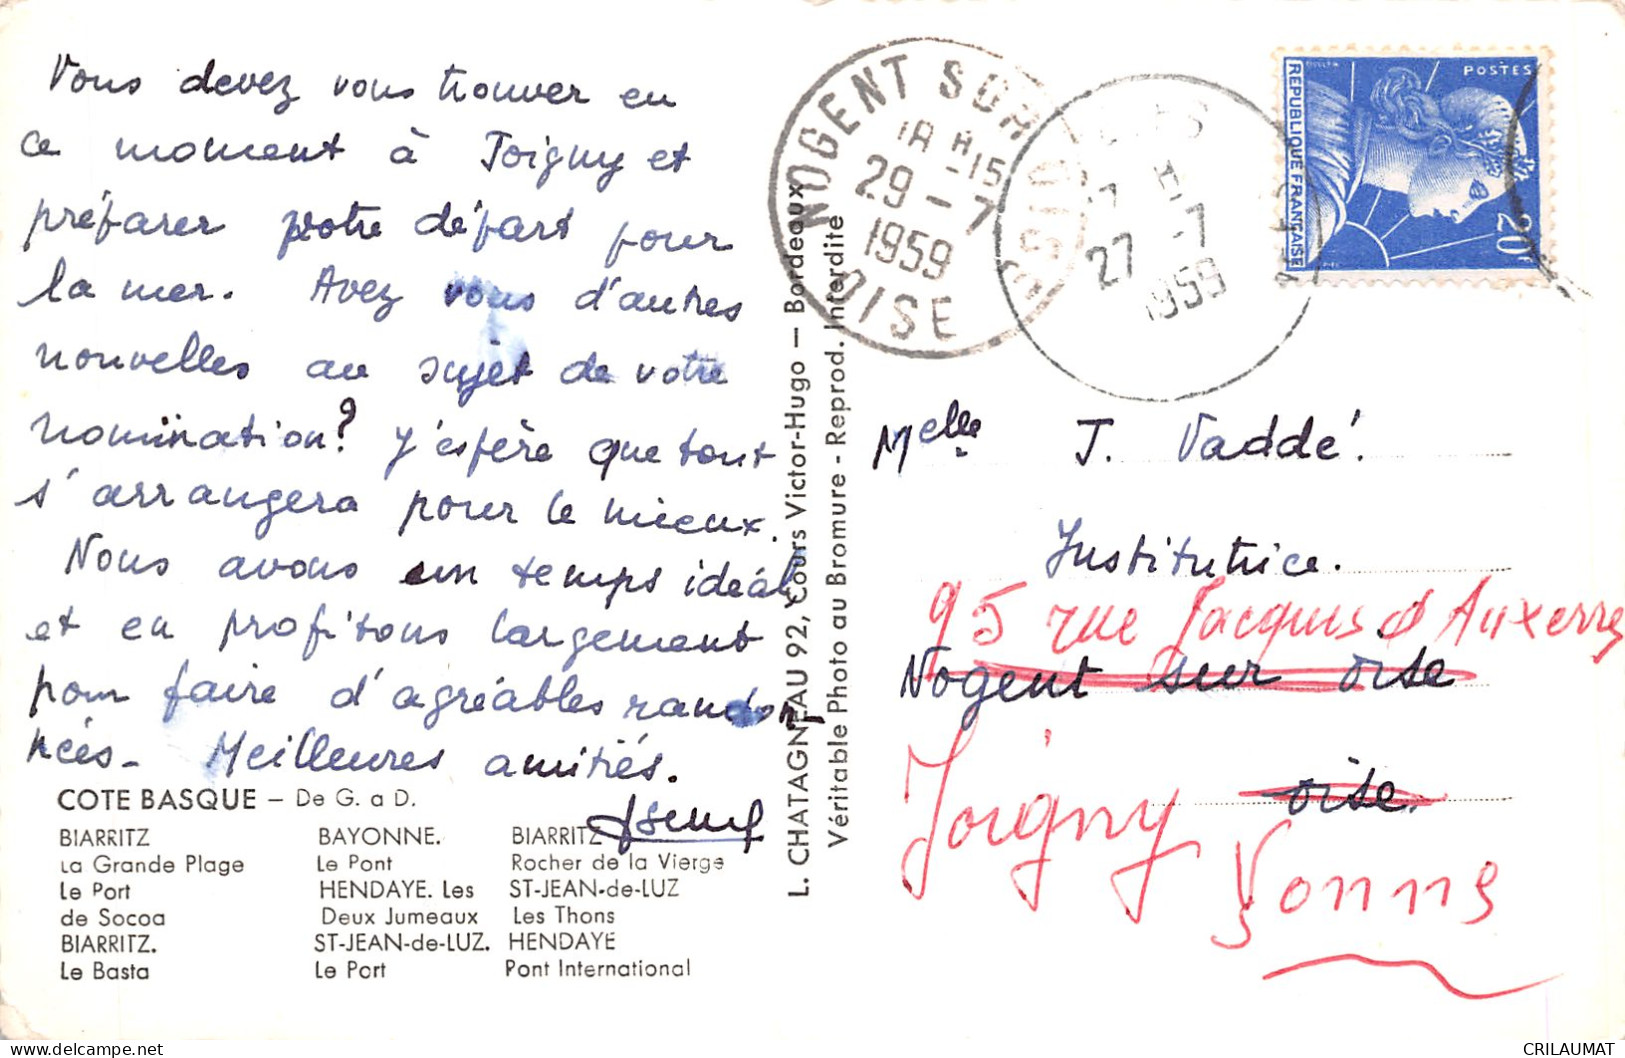 Vous devez vous trouver en
ce moment à Joigny et
préparer votre départ pour
la mer. Avez vous d'autres
nouvelles au sujet de votre
nomination? J'espère que tout
s'arrangera pour le mieux.
Nous avons un temps idéal
et en profitons largement
pour faire d'agréables randon
nées. Meilleures amitiés.
COTE BASQUE – De G. a D.
BIARRITZ
La Grande Plage
Le Port
de Socoa
BIARRITZ.
Le Basta
BAYONNE.
Le Pont
HENDAYE. Les
Deux Jumeaux
ST-JEAN-de-LUZ.
Le Port
BIARRITZ
Rocher de la Vierge
ST-JEAN-de-LUZ
Les Thons
HENDAYE
Pont International
L. CHATAGNEAU 92, Cours Victor-Hugo – Bordeaux
Véritable Photo au Bromure - Reprod. Interdite
NOGENT SUR
OISE
18 H 15
29 - 7
1959
27 - 7
1959
POSTES
REPUBLIQUE FRANÇAISE
20F
Melle J. Vaddé.
Institutrice.
95 rue Jacques d'Auxerre
Nogent sur Oise
Oise.
Joigny
Yonne
CRILAUMAT